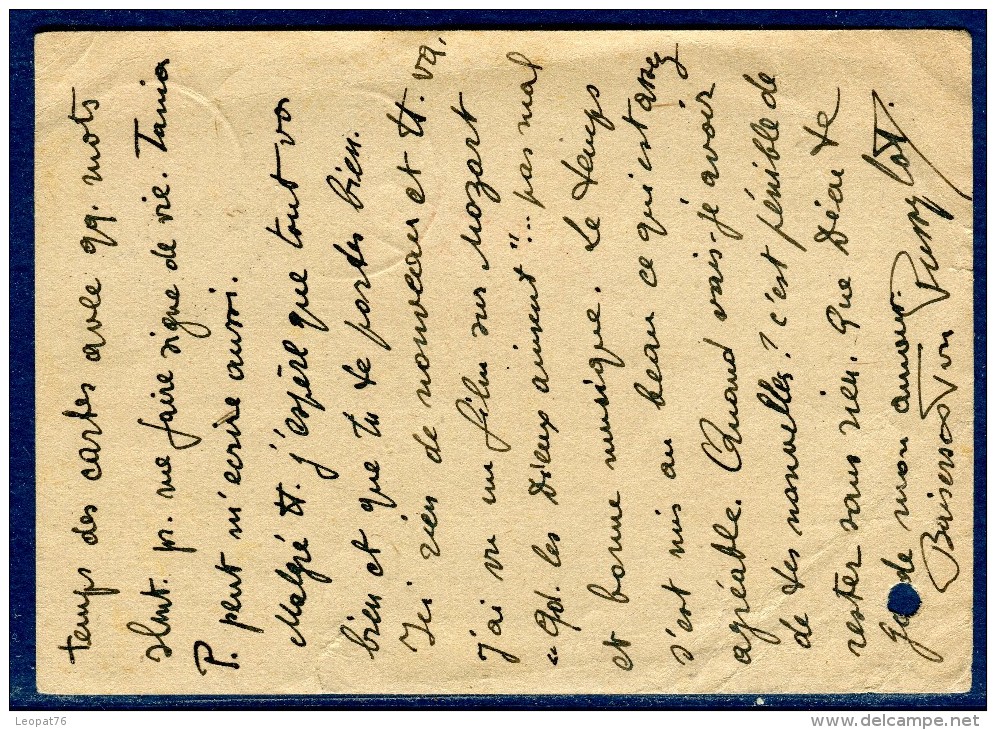 temps des cartes avec qq. mots
slmt. pr. me faire signe de vie. Tania
P. peut m'écrire aussi.
Malgré tt. j'espère que tout va
bien et que tu te portes bien.
Ici rien de nouveau et tt. va.
J'ai vu un film sur Mozart
"Qd. les Dieux aiment"... pas mal
et bonne musique. Le temps
s'est mis au beau ce qui est assez
agréable. Quand vais-je avoir
de tes nouvelles? c'est pénible de
rester sans rien. Que Dieu te
garde mon amour.
Baisers Ton
Leopat76
delcampe.net